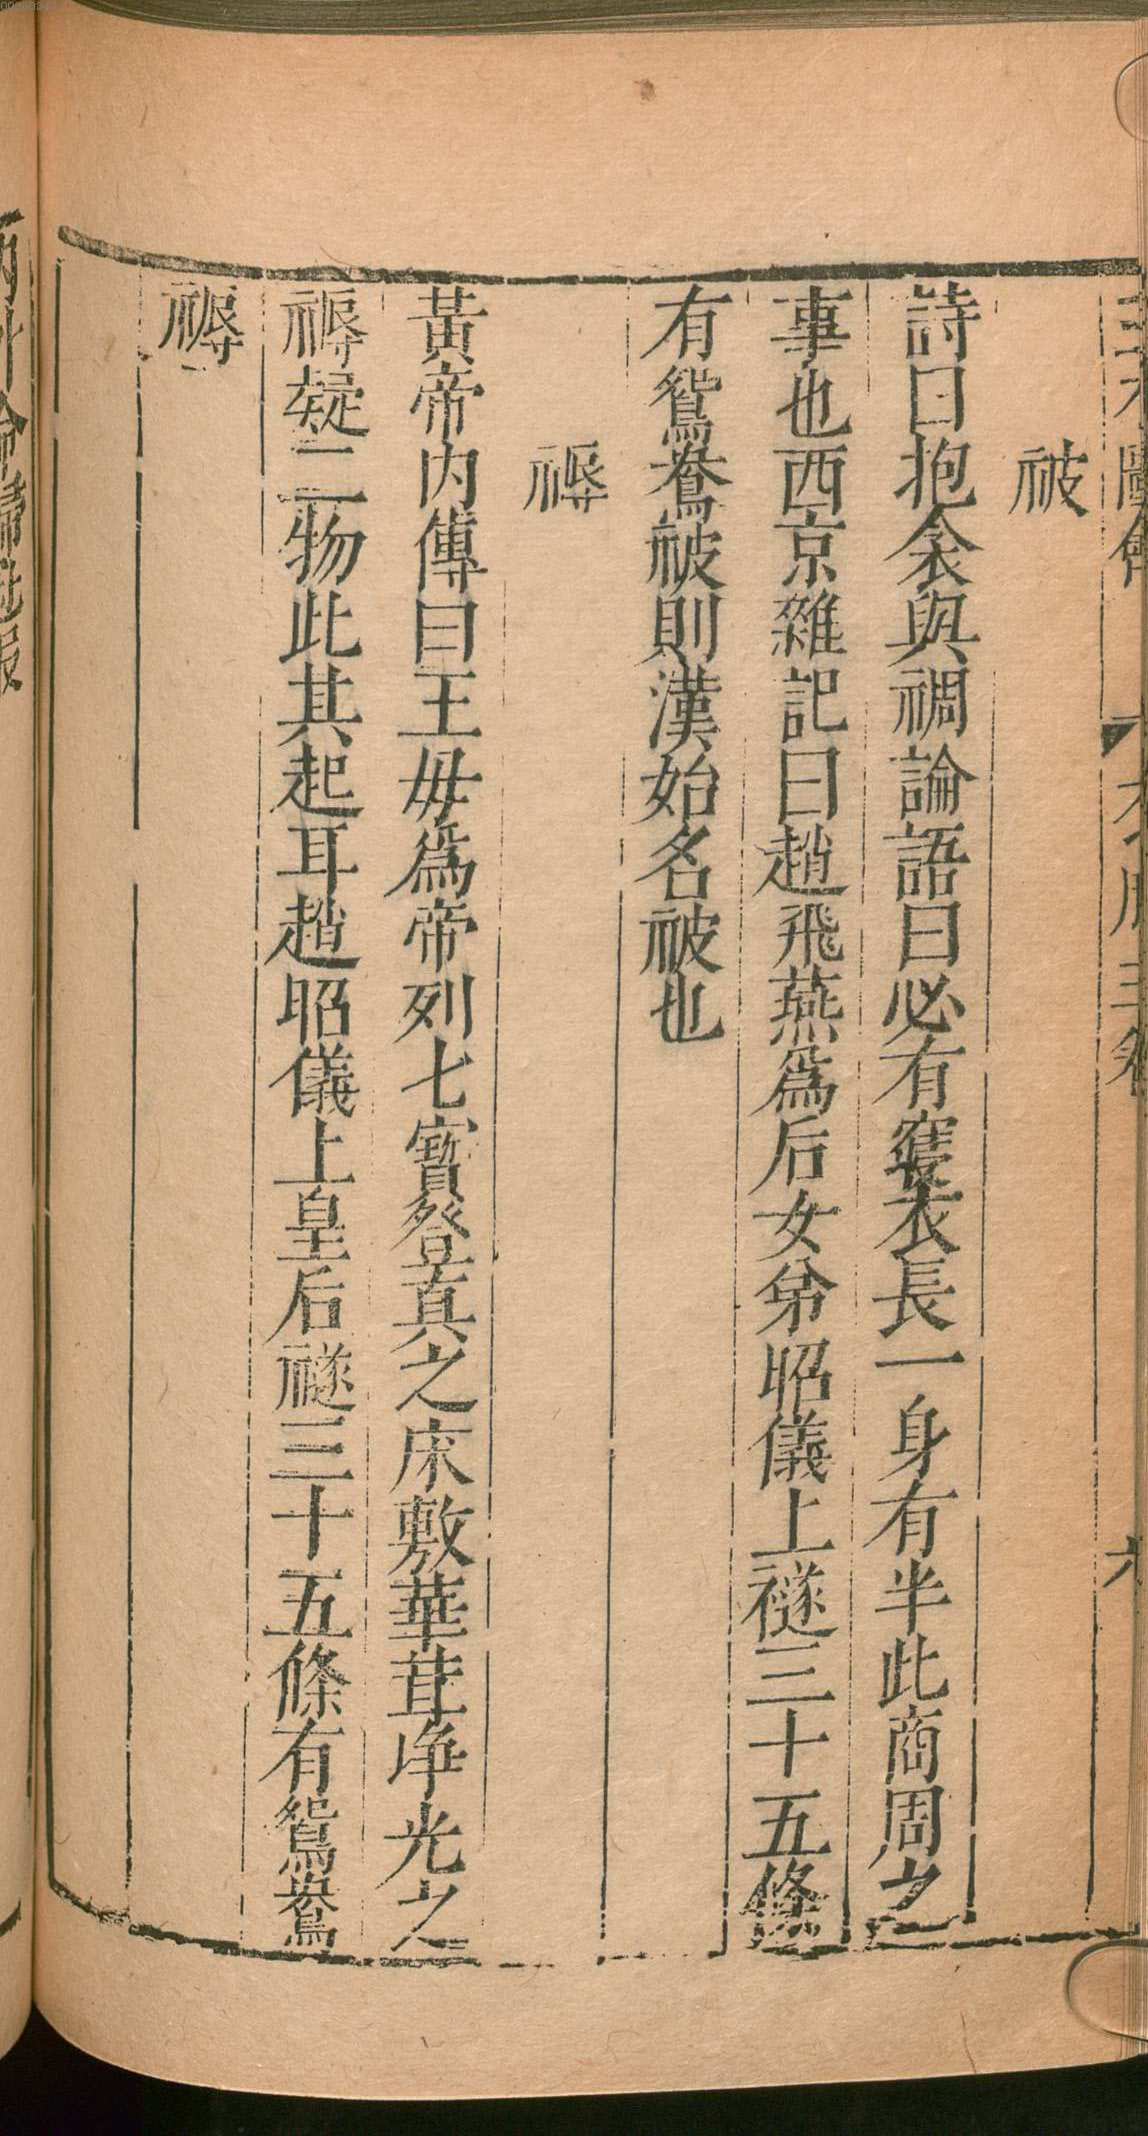 三才圖會 衣服三卷 六
被
詩曰抱衾與裯論語曰必有寢衣長一身有半此商周之
事也西京雜記曰趙飛燕為后女弟昭儀上襚三十五條
有鴛鴦被則漢始名被也
褥
黃帝内傳曰王母為帝列七寶登真之床敷華茸净光之
褥疑二物此其起耳趙昭儀上皇后襚三十五條有鴛鴦
褥